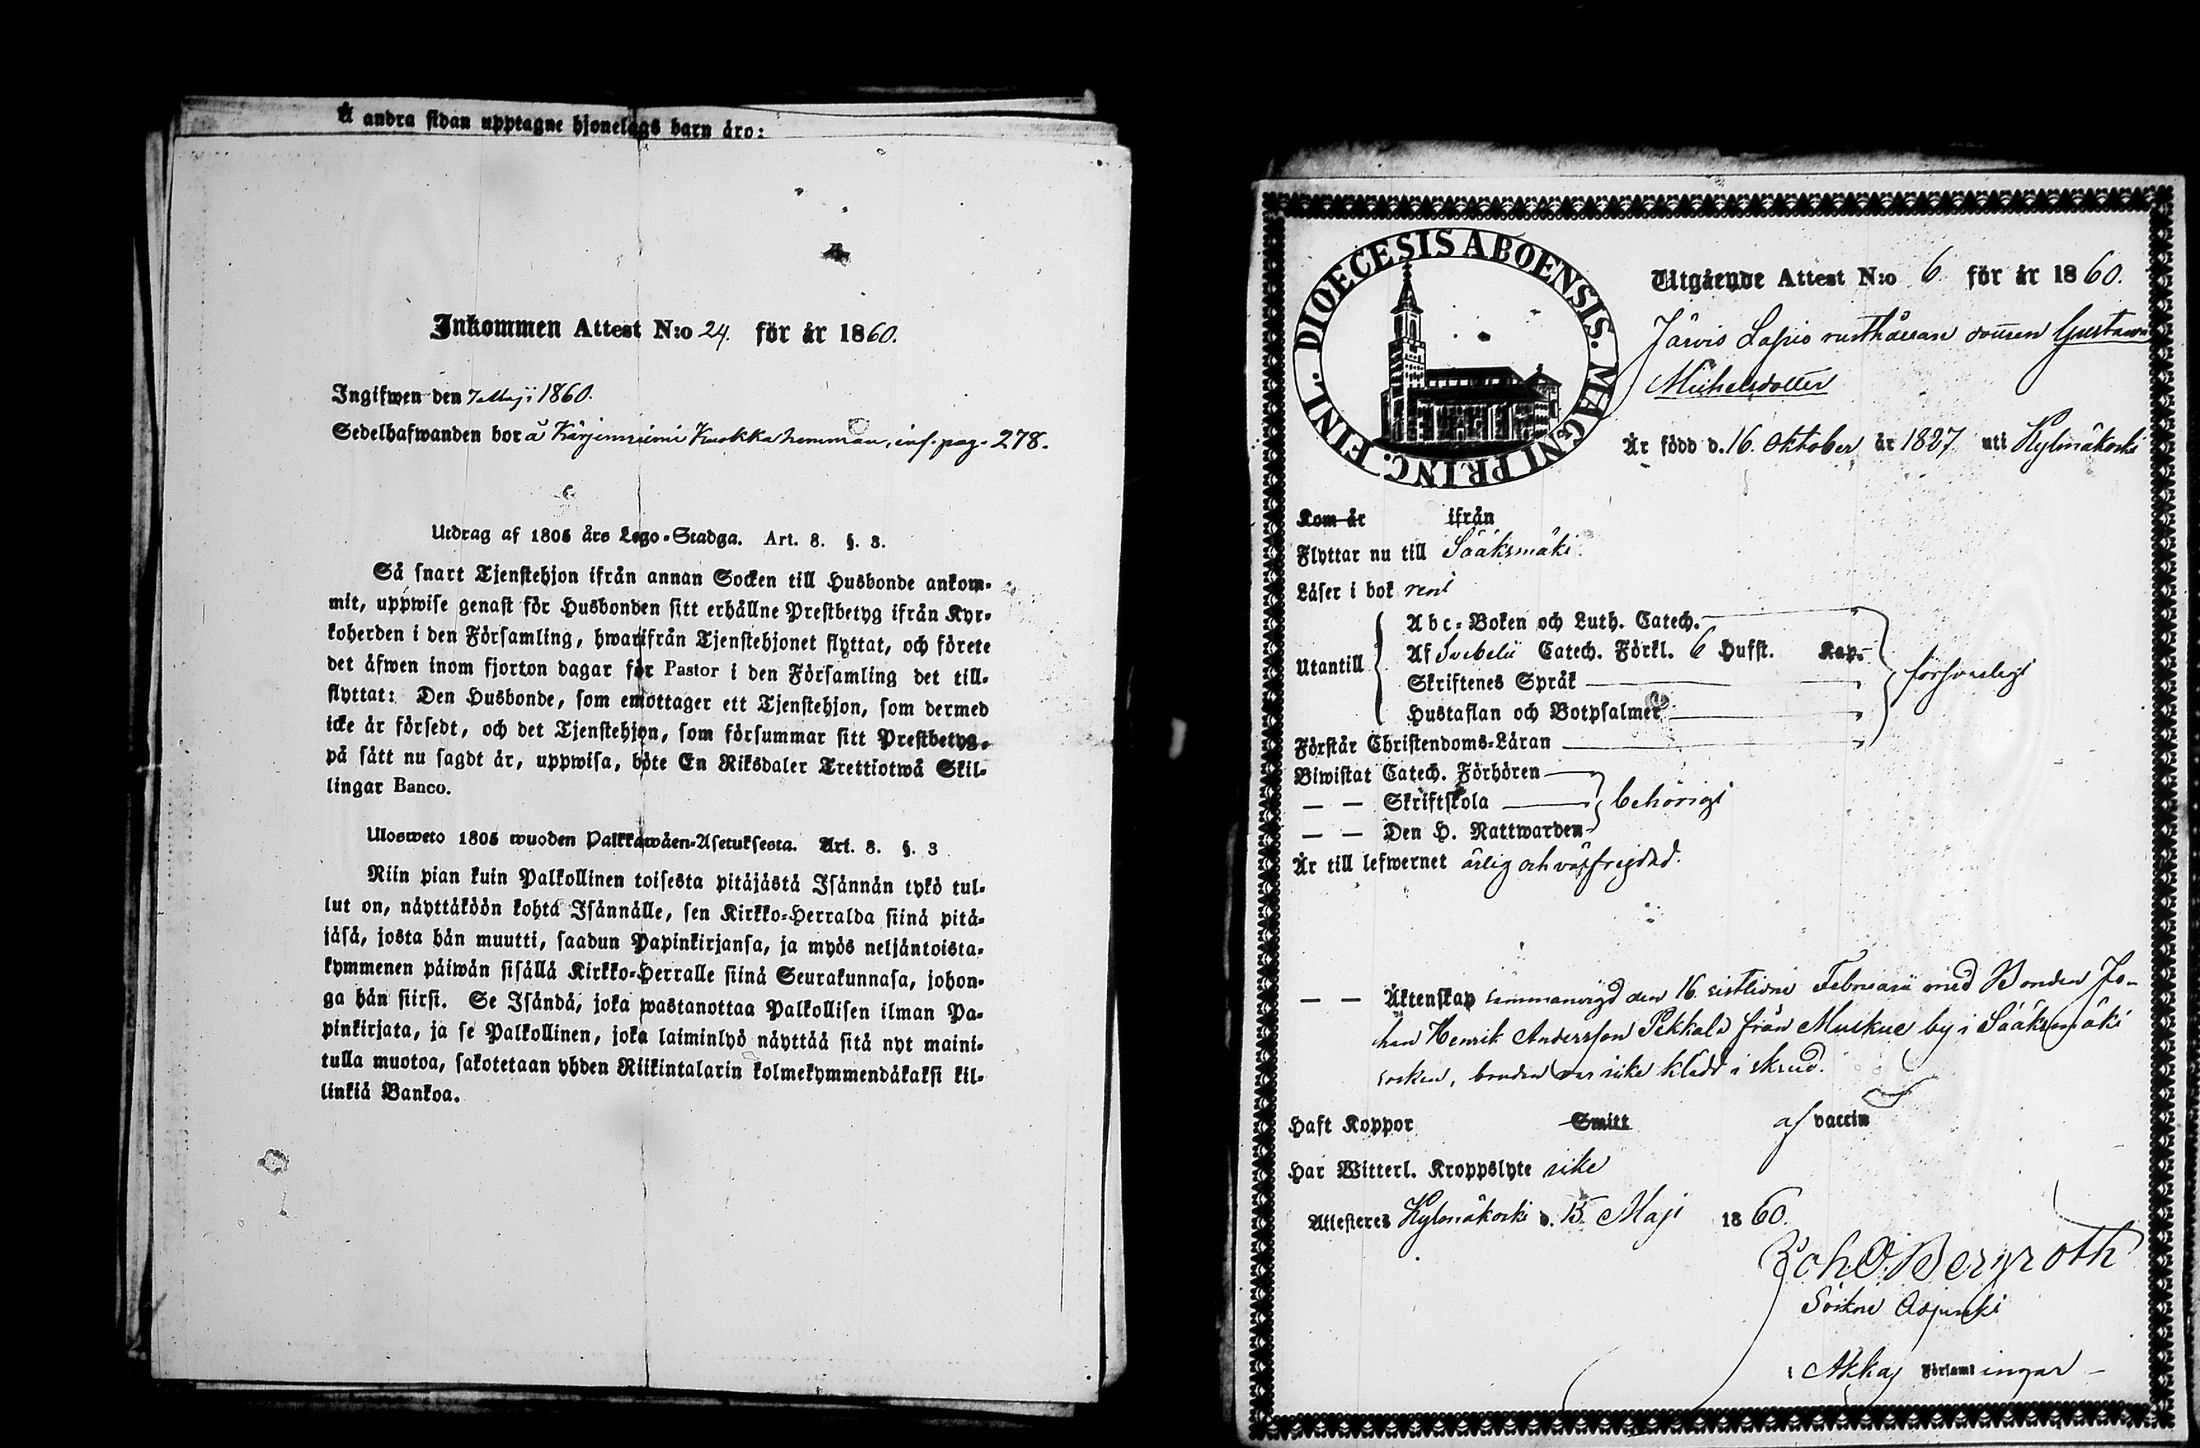 Å andra sidan upptagne hjonelags barn äro:
Inkommen Attest N:o 24. för år 1860.
Ingifwen den 7 Maji 1860.
Sedelhafwanden bor å Kärjenniemi Kuokka hemman, inf. pag. 278.
Utdrag af 1805 års Lego-Stadga. Art. 8. §. 3.
Så snart Tjenstehjon ifrån annan Socken till Husbonde ankom-
mit, uppwise genast för Husbonden sitt erhållne Prestbetyg ifrån Kyr-
koherden i den Församling, hwarifrån Tjenstehjonet flyttat, och förete
det äfwen inom fjorton dagar för Pastor i den Församling det till-
flyttat: Den Husbonde, som emottager ett Tjenstehjon, som dermed
icke är försedt, och det Tjenstehjon, som försummar sitt Prestbetyg,
på sätt nu sagdt är, uppwisa, böte En Riksdaler Trettiotwå Skil-
lingar Banco.
Ulosweto 1805 wuoden Palkkawäen-Asetuksesta. Art. 8. §. 3
Niin pian kuin Palkollinen toisesta pitäjästä Isännän tykö tul-
lut on, näyttäköön kohta Isännälle, sen Kirkko-Herralda siinä pitä-
jäsä, josta hän muutti, saadun Papinkirjansa, ja myös neljäntoista-
kymmenen päiwän sisällä Kirkko-Herralle siinä Seurakunnasa, johon-
ga hän siirsi. Se Isändä, joka wastanottaa Palkollisen ilman Pa-
pinkirjata, ja se Palkollinen, joka laiminlyö näyttää sitä nyt maini-
tulla muotoa, sakotetaan yhden Riikintalarin kolmekymmendäkaksi kil-
linkiä Bankoa.
DIOECESIS ABOENSIS. MAGNI PRINC. FINL.
Utgående Attest N:o 6 för år 1860.
Järvis Lapio rusthållare Gustava
Michelsdotter
Är född d. 16. Oktober år 1827 uti Kylmäkoski
Kom år ifrån
Flyttar nu till Sääksmäki.
Läser i bok rent
Abc-Boken och Luth. Catech.
Utantill Af Svebelii Catech. Förkl. 6 Hufst. Kap.
Skriftenes Språk försvarligt
Hustaflan och Botpsalmer
Förstår Christendoms-Läran
Biwistat Catech. Förhören
— — Skriftskola behörigt
— — Den H. Nattwarden
Är till lefwernet ärlig och välfrejdad.
— — Äktenskap sammanvigd den 16. sistlidne Februarii med Bonden Jo-
han Henrik Andersson Pekkala från Muskue by i Sääksmäki
socken, bruden var icke klädd i skrud.
Haft Koppor Smitt af vaccin
Har Witterl. Kroppslyte icke
Attesteras Kylmäkoski d. 15. Maji 1860.
Joh. O. Bergroth
i Akkas Församlingar